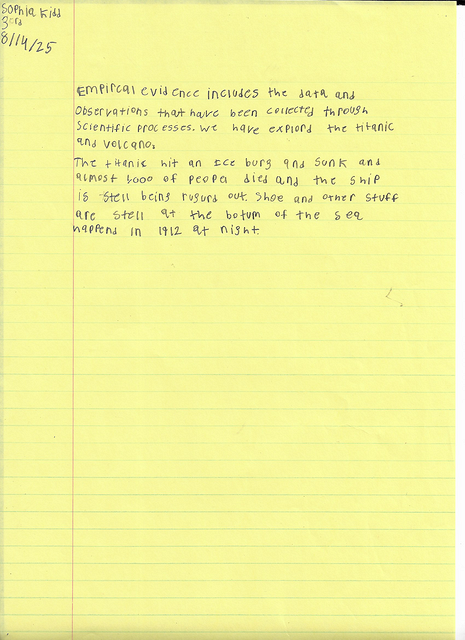 Sophia Kidd
3rd
8/14/25
Empircal evidence includes the data and
Observations that have been collected through
Scientific processes. we have explord the titanic
and volcano.
The titanic hit an Ice burg and Sunk and
almost 5000 of peoper died and the ship
is stell being rugurd out. Shoe and other stuff
are stell at the botum of the sea
happend in 1912 at night.